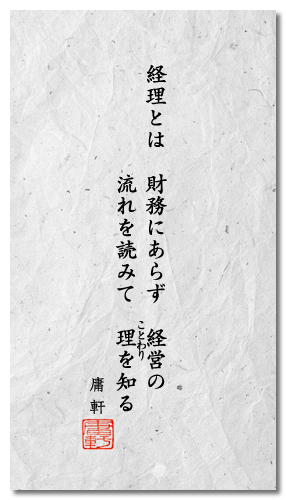 経理とは　財務にあらず　経営の
流れを読みて　理を知る
ことわり
庸軒